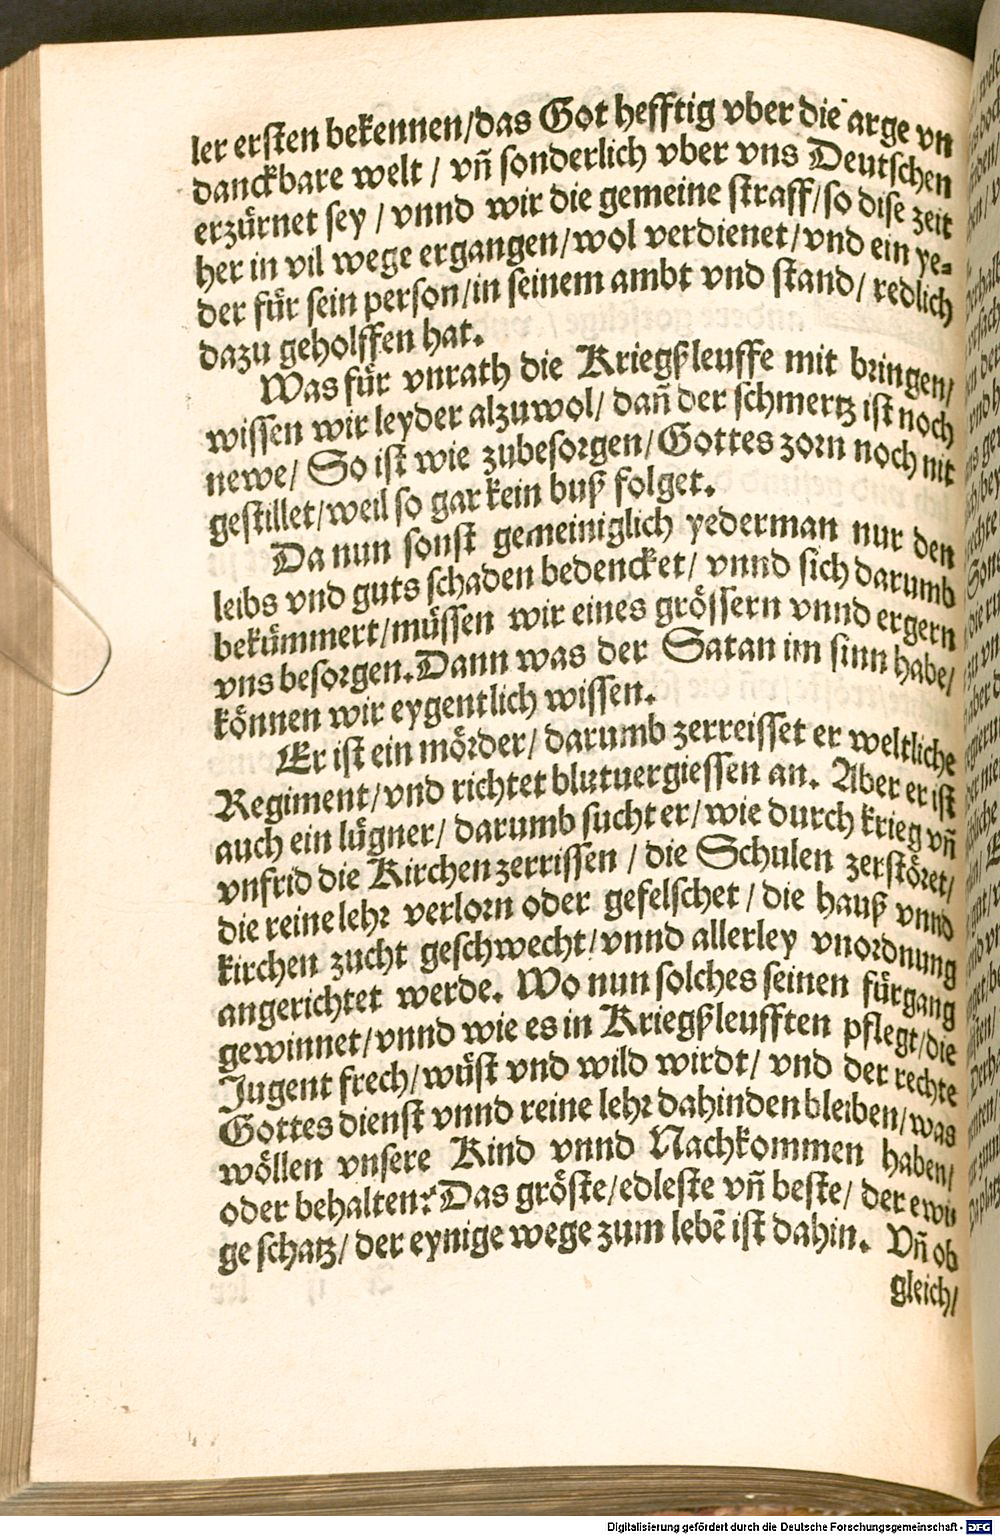 ler ersten bekennen/das Got hefftig vber die arge vn
danckbare welt / vñ sonderlich vber vns Deutschen
erzürnet sey / vnnd wir die gemeine straff/so dise zeit
her in vil wege ergangen/wol verdienet/vnd ein ye-
der für sein person/in seinem ambt vnd stand/ redlich
dazu geholffen hat.
Was für vnrath die Kriegßleuffe mit bringen/
wissen wir leyder alzuwol/ dañ der schmertz ist noch
newe/ So ist wie zubesorgen/Gottes zorn noch nit
gestillet/weil so gar kein buß folget.
Da nun sonst gemeiniglich yederman nur den
leibs vnd guts schaden bedencket/ vnnd sich darumb
bekümmert/müssen wir eines grössern vnnd ergern
vns besorgen. Dann was der Satan im sinn habe/
können wir eygentlich wissen.
Er ist ein mörder/ darumb zerreisset er weltliche
Regiment/vnd richtet blutuergiessen an. Aber er ist
auch ein lügner/ darumb sucht er/ wie durch krieg vñ
vnfrid die Kirchen zerrissen / die Schulen zerstöret/
die reine lehr verlorn oder gefelschet / die hauß vnnd
kirchen zucht geschwecht/ vnnd allerley vnordnung
angerichtet werde. Wo nun solches seinen fürgang
gewinnet/vnnd wie es in Kriegßleufften pflegt/die
Jugent frech/wüst vnd wild wirdt/ vnd der rechte
Gottes dienst vnnd reine lehr dahinden bleiben/was
wöllen vnsere Kind vnnd Nachkommen haben/
oder behalten? Das gröste/edleste vñ beste/ der ewi
ge schatz/ der eynige wege zum lebē ist dahin. Vñ ob
gleich/
Digitalisierung gefördert durch die Deutsche Forschungsgemeinschaft - DFG